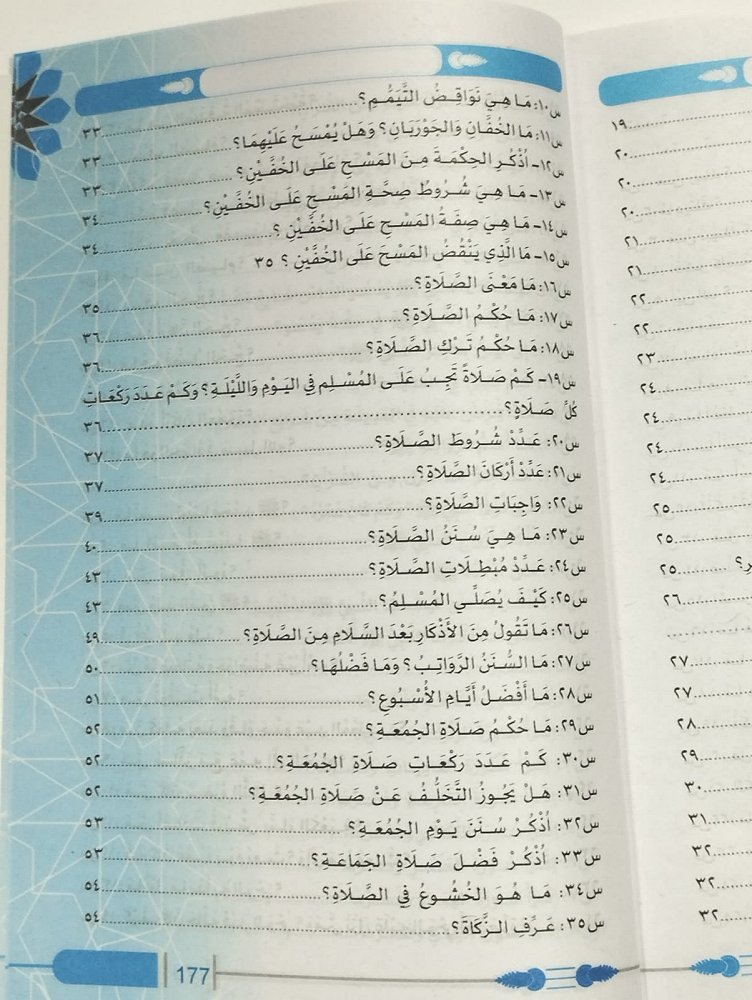 ١٩
٢٠
٢٠
٢٠
٢١
٢١
٢٢
٢٢
٢٣
٢٤
٢٤
٢٤
٢٤
٢٥
٢٥
٢٥
٢٦
٢٧
٢٧
٢٨
٢٩
٣٠
٣١
٣٢
٣٢
٣٢
س١٠: مَا هِيَ نَوَاقِضُ التَّيَمُّمِ؟ ٣٣
س١١: مَا الخُفَّانِ وَالجَوْرَبَانِ؟ وَهَلْ يُمْسَحُ عَلَيْهِمَا؟ ٣٣
س١٢- اُذْكُرِ الحِكْمَةَ مِنَ المَسْحِ عَلَى الخُفَّيْنِ؟ ٣٣
س١٣- مَا هِيَ شُرُوطُ صِحَّةِ المَسْحِ عَلَى الخُفَّيْنِ؟ ٣٤
س١٤- مَا هِيَ صِفَةُ المَسْحِ عَلَى الخُفَّيْنِ ؟ ٣٤
س١٥- مَا الَّذِي يَنْقُضُ المَسْحَ عَلَى الخُفَّيْنِ ؟ ٣٥
س١٦: مَا مَعْنَى الصَّلَاةِ؟ ٣٥
س١٧: مَا حُكْمُ الصَّلَاةِ؟ ٣٦
س١٨: مَا حُكْمُ تَرْكِ الصَّلَاةِ؟ ٣٦
س١٩- كَمْ صَلَاةً تَجِبُ عَلَى المُسْلِمِ فِي اليَوْمِ وَاللَّيْلَةِ؟ وَكَمْ عَدَدَ رَكْعَاتِ
كُلِّ صَلَاةٍ؟ ٣٦
س٢٠: عَدِّدْ شُرُوطَ الصَّلَاةِ؟ ٣٧
س٢١: عَدِّدْ أَرْكَانَ الصَّلَاةِ؟ ٣٧
س٢٢: وَاجِبَاتِ الصَّلَاةِ؟ ٣٩
س٢٣: مَا هِيَ سُنَنُ الصَّلَاةِ؟ ٤٠
س٢٤: عَدِّدْ مُبْطِلَاتِ الصَّلَاةِ؟ ٤٣
س٢٥: كَيْفَ يُصَلِّي المُسْلِمُ؟ ٤٣
س٢٦: مَا تَقُولُ مِنَ الأَذْكَارِ بَعْدَ السَّلَامِ مِنَ الصَّلَاةِ؟ ٤٩
س٢٧: مَا السُّنَنُ الرَّوَاتِبُ؟ وَمَا فَضْلُهَا؟ ٥٠
س٢٨: مَا أَفْضَلُ أَيَّامِ الأُسْبُوعِ؟ ٥١
س٢٩: مَا حُكْمُ صَلَاةِ الجُمُعَةِ؟ ٥٢
س٣٠: كَمْ عَدَدَ رَكْعَاتِ صَلَاةِ الجُمُعَةِ؟ ٥٢
س٣١: هَلْ يَجُوزُ التَّخَلُّفُ عَنْ صَلَاةِ الجُمُعَةِ؟ ٥٢
س٣٢: اُذْكُرْ سُنَنَ يَوْمِ الجُمُعَةِ؟ ٥٣
س٣٣: اُذْكُرْ فَضْلَ صَلَاةِ الجَمَاعَةِ؟ ٥٣
س٣٤: مَا هُوَ الخُشُوعُ فِي الصَّلَاةِ؟ ٥٤
س٣٥: عَرِّفِ الزَّكَاةَ؟ ٥٤
177